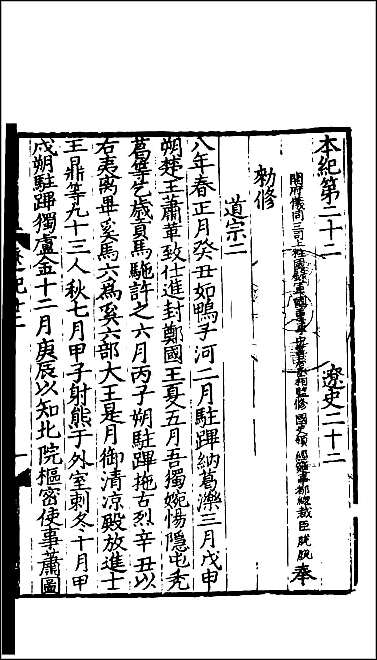 本紀第二十二 遼史二十二
開府儀同三司上柱國錄軍國重事中書右丞相監修 國史領 經筵事都總裁臣脱脱 奉
勅修
道宗二
八年春正月癸丑如鴨子河二月駐蹕納葛濼三月戊申
朔楚王蕭革致仕進封鄭國王夏五月吾獨婉惕隱屯禿
葛等乞歲貢馬駞許之六月丙子朔駐蹕拖古烈辛丑以
右夷离畢奚馬六為奚六部大王是月御清凉殿放進士
王鼎等九十三人秋七月甲子射熊于外室剌冬十月甲
戌朔駐蹕獨盧金十二月庚辰以知北院樞密使事蕭圖